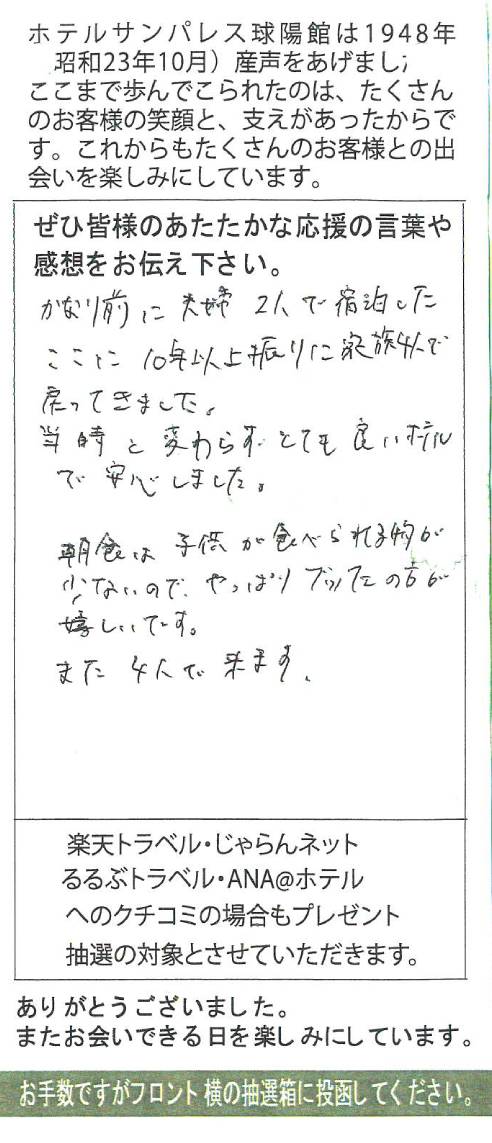 ホテルサンパレス球陽館は1948年
昭和23年10月）産声をあげまし
ここまで歩んでこられたのは、たくさん
のお客様の笑顔と、支えがあったからで
す。これからもたくさんのお客様との出
会いを楽しみにしています。
ぜひ皆様のあたたかな応援の言葉や
感想をお伝え下さい。
かなり前に夫婦2人で宿泊した
ここに10年以上振りに家族4人で
戻ってきました。
当時と変わらずとても良いホテル
で安心しました。
朝食は子供が食べられる物が
少ないので、やっぱりブッフェの方が
嬉しいです。
また4人で来ます。
楽天トラベル・じゃらんネット
るるぶトラベル・ANA@ホテル
へのクチコミの場合もプレゼント
抽選の対象とさせていただきます。
ありがとうございました。
またお会いできる日を楽しみにしています。
お手数ですがフロント横の抽選箱に投函してください。